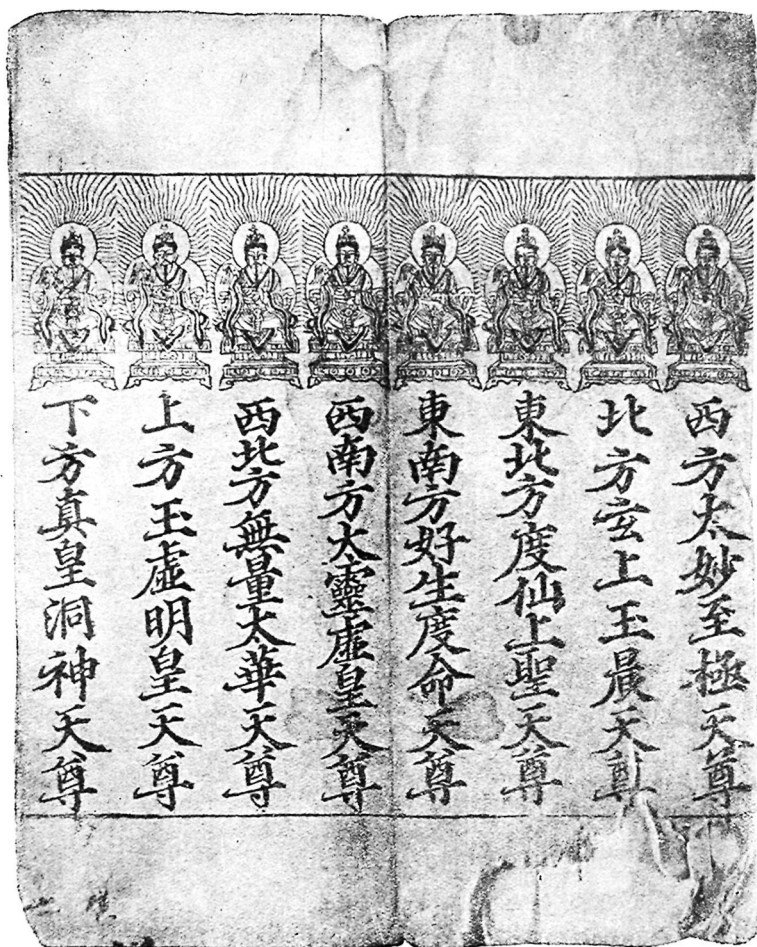 西方太妙至極天尊
北方玄上玉晨天尊
東北方度仙上聖天尊
東南方好生度命天尊
西南方太靈虛皇天尊
西北方無量太華天尊
上方玉虛明皇天尊
下方真皇洞神天尊